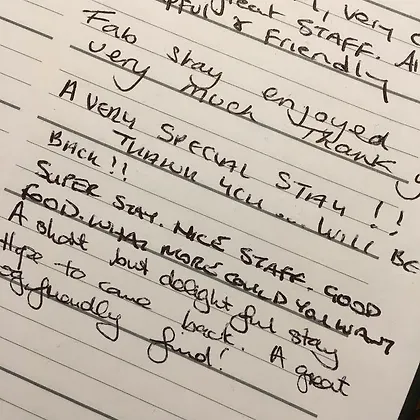 great STAFF. , very
& Friendly
Fab stay enjoyed
very much Thank
A VERY SPECIAL STAY !!
THANK YOU ... WILL BE
BACK !!
SUPER STAY. NICE STAFF. GOOD
FOOD. WHAT MORE COULD YOU WANT
A short but delightful stay
Hope to come back. A great
dog friendly find!